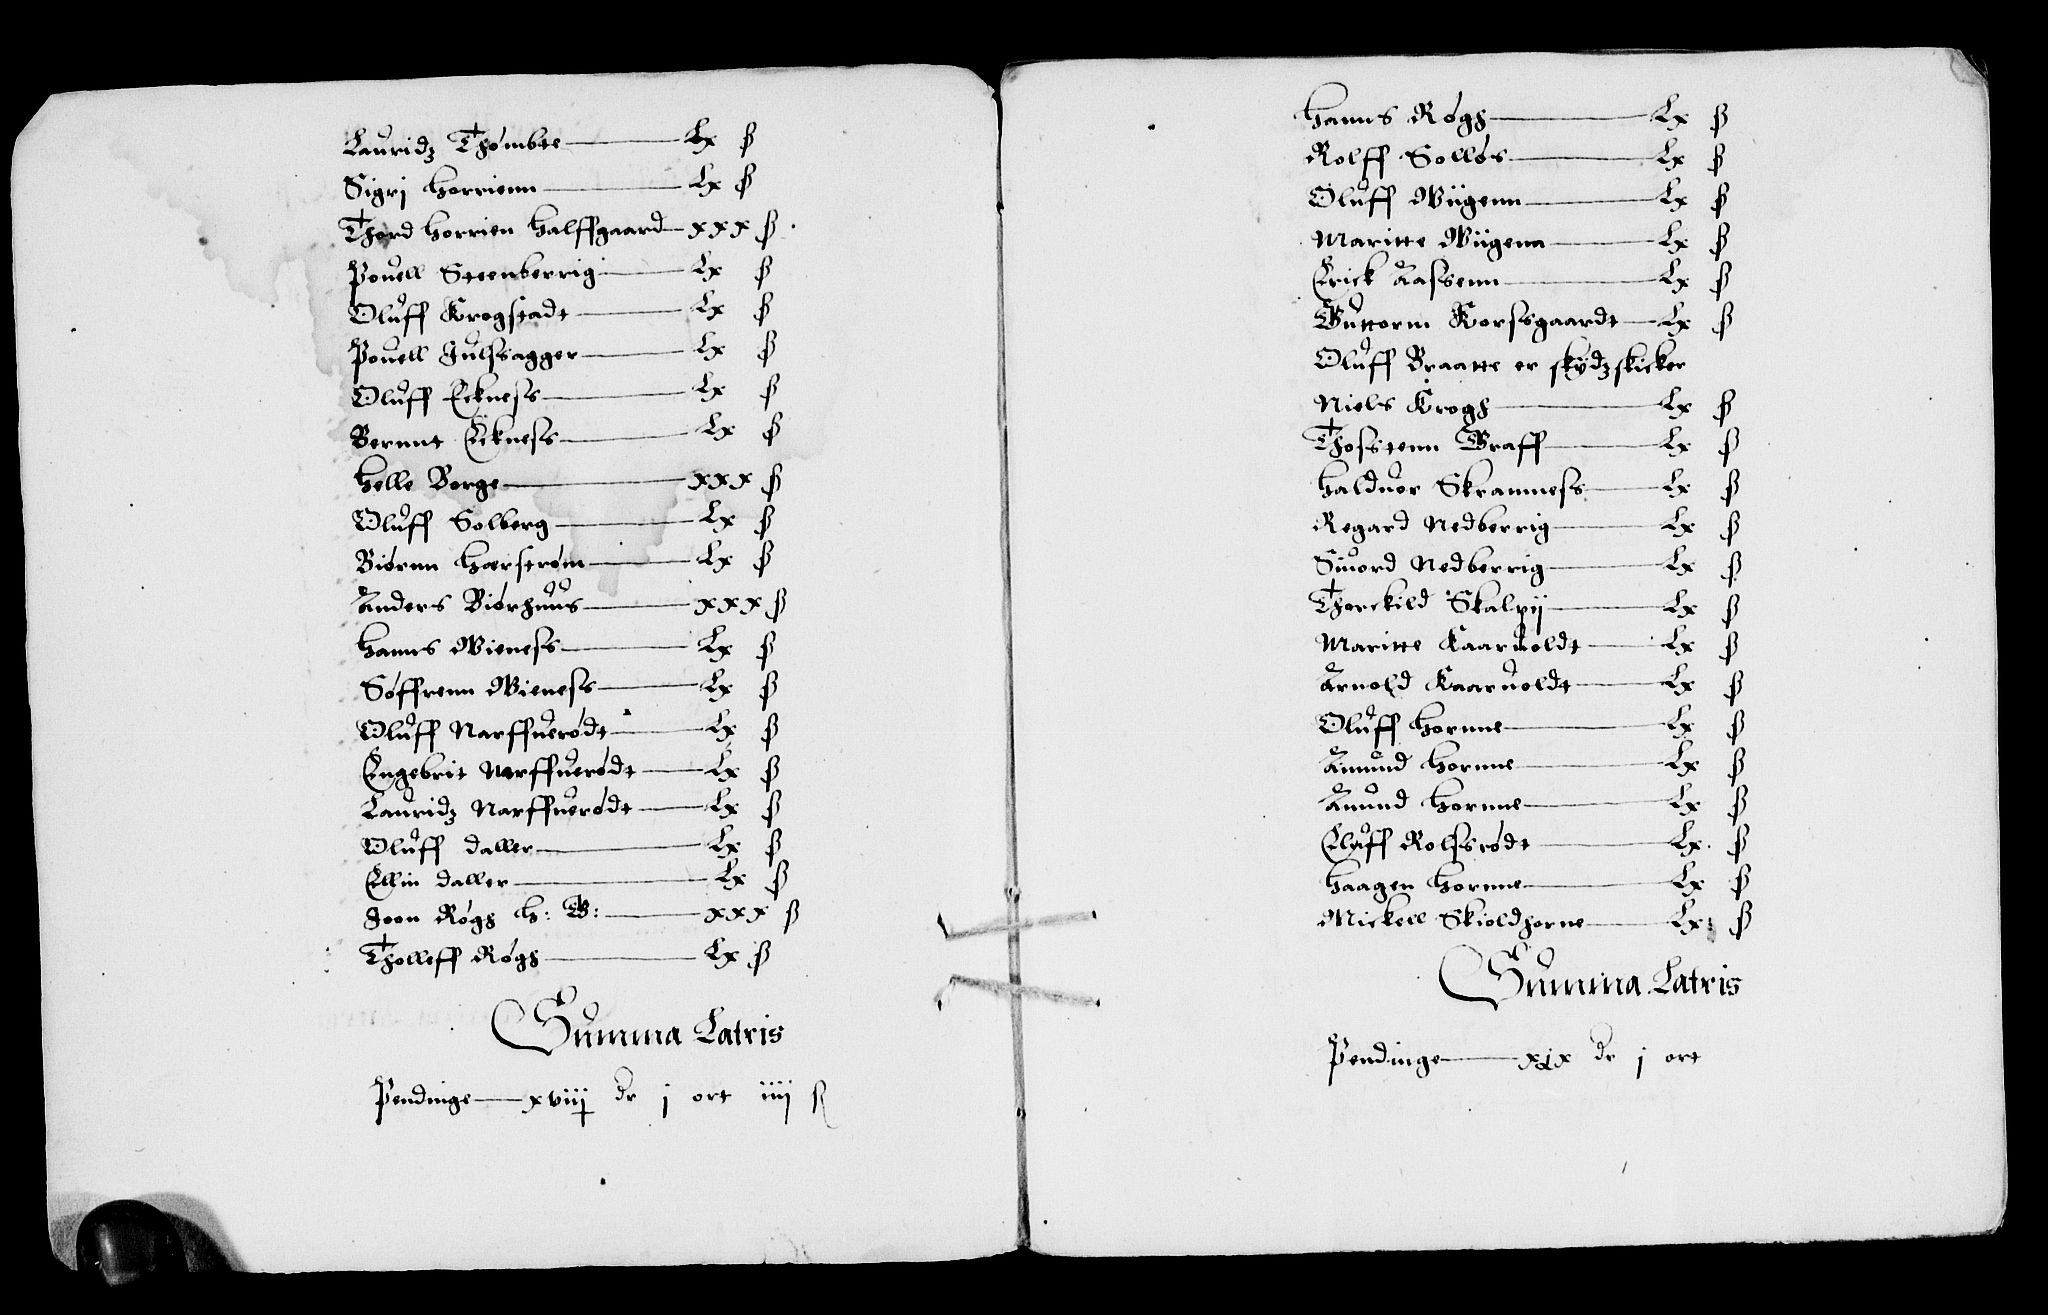 Lauridz Thømbte — Lx ß
Sigrj Horrienn — Lx ß
Thord Horrien Halffgaard — xxx ß
Pouell Steenberrig — Lx ß
Oluff Krogstadt — Lx ß
Pouell Julssagger — Lx ß
Oluff Eckness — Lx ß
Bernnt Eckness — Lx ß
Helle Borge — xxx ß
Oluff Solberg — Lx ß
Biørnn Hærstrøm — Lx ß
Anders Biørhuus — xxx ß
Hanns Wieness — Lx ß
Søffrenn Wieness — Lx ß
Oluff Narffuerødt — Lx ß
Engebrit Narffuerødt — Lx ß
Lauridz Narffuerødt — Lx ß
Oluff daller — Lx ß
Ellin daller — Lx ß
Joen Røgh H: G: — xxx ß
Tholleff Røgh — Lx ß
Summa Latris
Pendinge — xviij dr j ort iiij ß
Hanns Røgh — Lx ß
Rolff Solløs — Lx ß
Oluff Wiigenn — Lx ß
Maritte Wiigenn — Lx ß
Erick Aassenn — Lx ß
Guttorm Korssgaardt — Lx ß
Oluff Braatte er skydzskicker
Niels Krogh — Lx ß
Thosstenn Graff — Lx ß
Halduor Skramness — Lx ß
Regard Nedberrig — Lx ß
Siuord Nedberrig — Lx ß
Thorckild Skalpij — Lx ß
Maritte Kaaruoldt — Lx ß
Arnold Kaaruoldt — Lx ß
Oluff Hornne — Lx ß
Amund Hornne — Lx ß
Anund Hornne — Lx ß
Elluff Rolssrødt — Lx ß
Haagen Hornne — Lx ß
Mickell Skioldhorne — Lx ß
Summa Latris
Pendinge — xix dr j ort